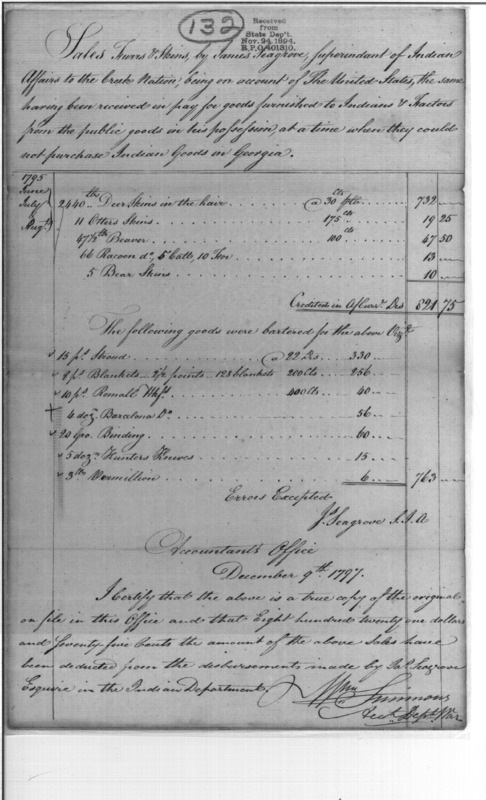 132
Received
from
State Dep't.
Nov. 24, 1894.
R.P.O. 401310.
Sales Furrs & Skins, by James Seagrove, Superindant of Indian
Affairs to the Creek Nation, being on account of The United States, the same
having been received in pay for goods furnished to Indians & Factors
from the public goods in his possession, at a time when they could
not purchase Indian Goods in Georgia.
1795
June
July &
Augt.
2440 lb Deer Skins in the hair @ 30 Cts 732
11 Otters Skins 175 cts 19 25
47½ lb Beaver 100 cts 47 50
66 Racoon do, 5 Catts, 10 Fox 13
5 Bear Skins 10
Credited in Dls 821 75
The following goods were bartered for the above Vizt.
15 ps. Stroud @ 22 Dls 330
8 ps. Blankets 2½ points 128 blankets 200 Cts 256
10 ps. Romall Hkfs. 400 Cts 40
4 doz Barcalona Do. 56
20 Gro. Binding 60
5 dozn. Hunters Knives 15
3 lb Vermillion 6 763
Errors Excepted
Js. Seagrove S.I.A
Accountant's Office
December 9th. 1797.
I Certify that the above is a true copy of the original
on file in this Office and that Eight hundred twenty one dollars
and Seventy five Cents the amount of the above Sales have
been deducted from the disbursements made by Jas. Seagrove
Esquire in the Indian Department.
Wm Simmons
Acct. Dept. War